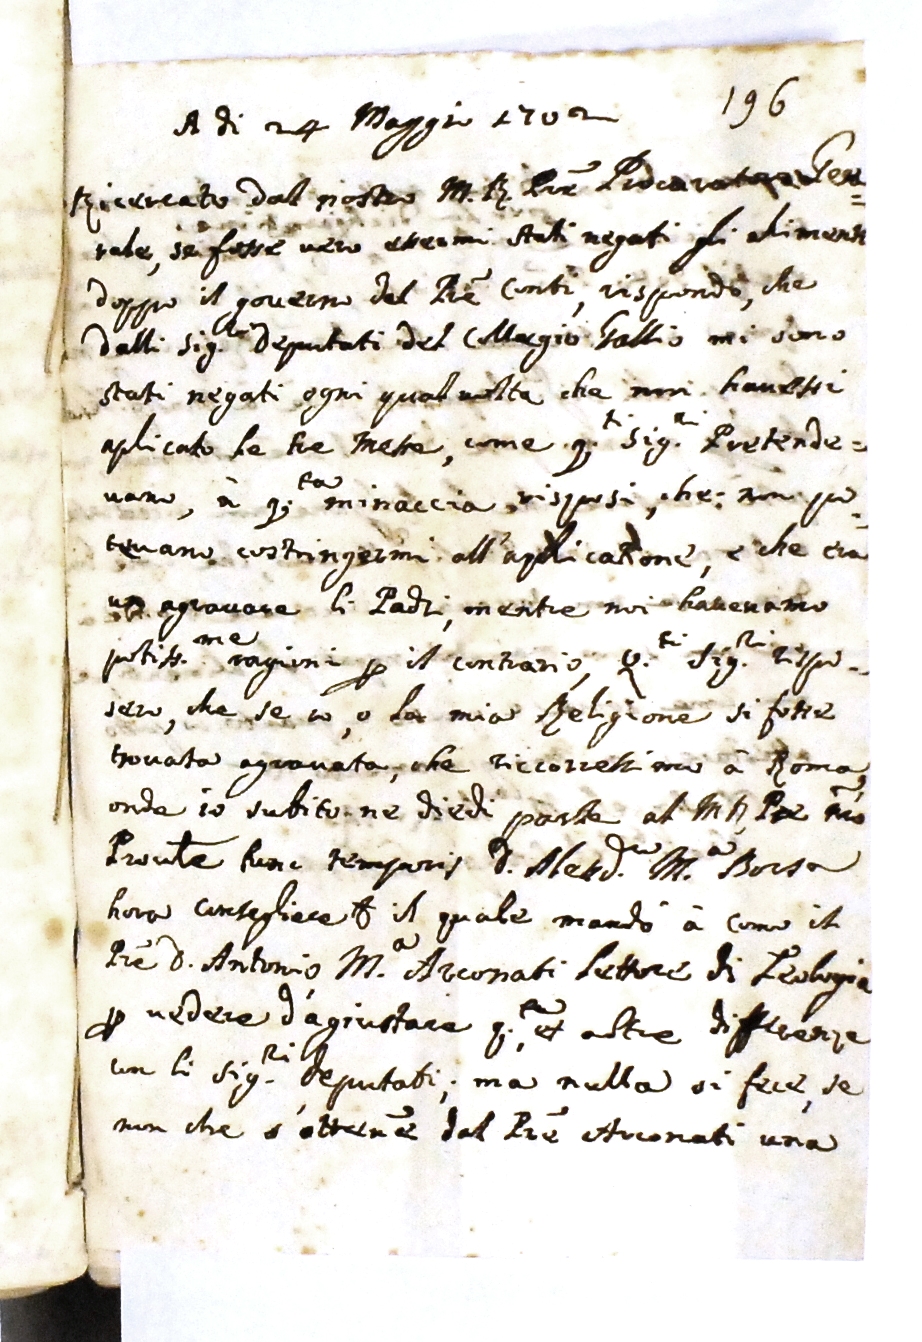 196
A di 24 Maggio 1702
Ricercato dal nostro M. R. Prē Procurator Gen=
rale, se fosse vero essermi stati negati gli alimenti
doppo il governo del Prē Conti, rispondo, che
dalli Sig.ri Deputati del Collegio Gallio mi sono
stati negati ogni qual volta che non havessi
aplicato le tre Messe, come q.ti Sig.ri Pretende=
vano, à q.ta minaccia risposi, che non po=
tevano costringermi all'aplicatione, e che era
un agravare li Padri, mentre noi havevamo
potiss.me ragioni p il contrario, Q.ti Sig.ri rispo=
sero, che se io, o la mia Religione si fosse
trovata agravata, che riccorressimo à Roma,
onde io subito ne diedi parte al M R Pre mīo
Proūle tunc temporis D. Alessd.ro M.a Borsa
hora Consegliere il quale mandò à Como il
Prē D. Antonio M.a Arconati Lettore di Teologia
p vedere d'agiustare q.ta, et altre differenze
con li Sig.ri Deputati; ma nulla si fece, se
non che s'ottenne dal Prē Arconati una